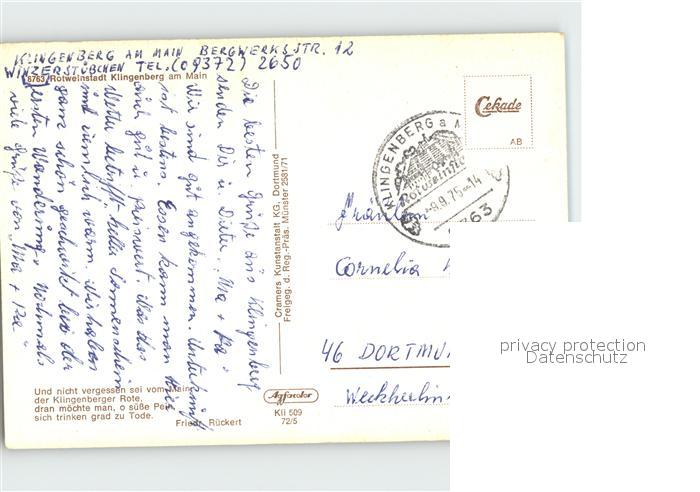 KLINGENBERG AM MAIN BERGWERKSSTR. 12
WINZERSTÜBCHEN TEL. (09372) 2650
8763 Rotweinstadt Klingenberg am Main
Die besten Grüße aus Klingenberg
senden Dir u. Dieter „Ma + Pa"
Wir sind gut angekommen. Unterkunft
ist bestens. Essen kann man hier
auch gut u. preiswert. Was das
Wetter betrifft, heller Sonnenschein
und ziemlich warm. Wir haben
ganz schön geschwitzt bei der
ersten Wanderung. Nochmals
viele Grüße von „Ma + Pa"
Und nicht vergessen sei vom Main
der Klingenberger Rote,
dran möchte man, o süße Pein
sich trinken grad zu Tode.
Friedr. Rückert
Cramers Kunstanstalt KG, Dortmund
Freigeg. d. Reg.-Präs. Münster 2581/71
Agfacolor
Kli 509
72/5
Cekade
AB
KLINGENBERG a
Rotweinstadt
-9.9.75-14
8763
Fräulein
Cornelia
46 DORTMU
Weckherlin
privacy protection
Datenschutz